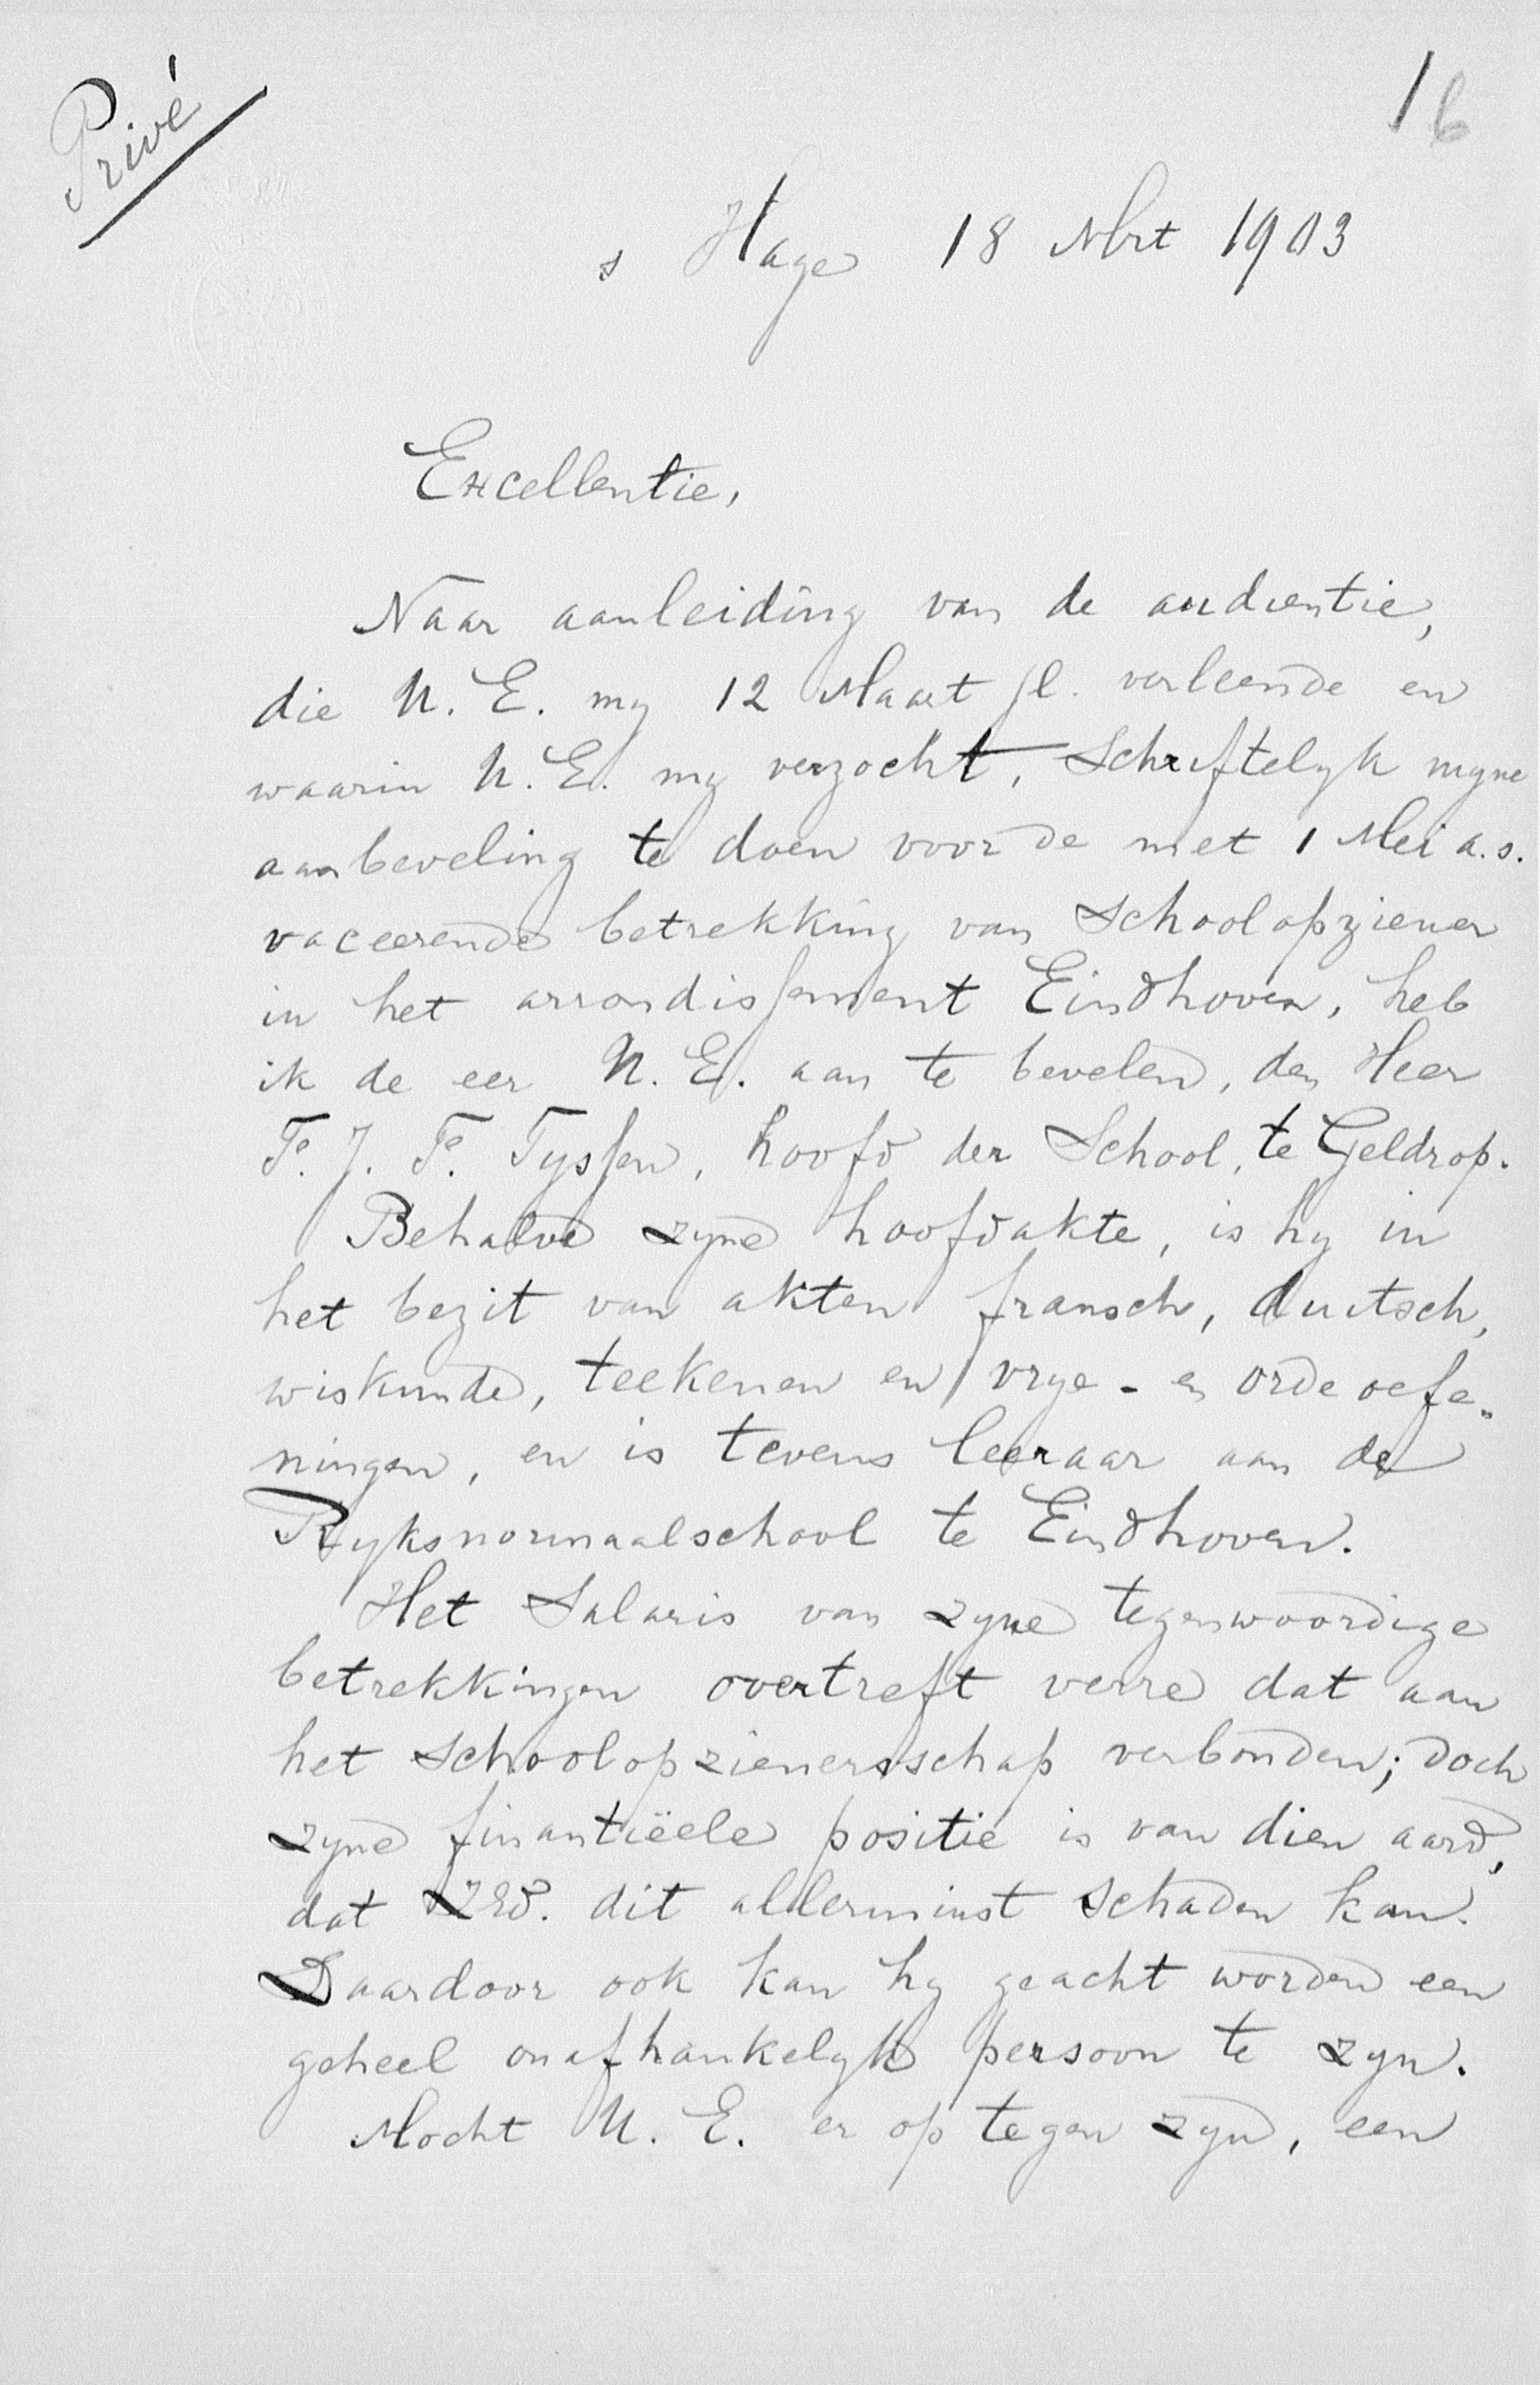 Privé
16
s Hage 18 Mrt 1903
Excellentie,
Naar aanleiding van de audientie,
die U. E. my 12 Maart jl. verleende en
waarin U. E. my verzocht, Schriftelyk myne
aanbeveling te doen voor de met 1 Mei a.s.
vaceerende betrekking van Schoolopziener
in het arrondissement Eindhoven, heb
ik de eer U. E. aan te bevelen, den Heer
F. J. F. Tyssen, hoofd der School, te Geldrop.
Behalve zyne hoofdakte, is hy in
het bezit van akten fransch, duitsch,
wiskunde, teekenen en vrye- en orde oefe-
ningen, en is tevens leeraar aan de
Ryksnormaalschool te Eindhoven.
Het Salaris van zyne tegenwoordige
betrekkingen overtreft verre dat aan
het schoolopzienersschap verbonden; doch
zyne finantiëele positie is van dien aard,
dat ZEd. dit allerminst schaden kan.
Daardoor ook kan hy geacht worden een
geheel onafhankelyk persoon te zyn.
Mocht U. E. er op tegen zyn, een